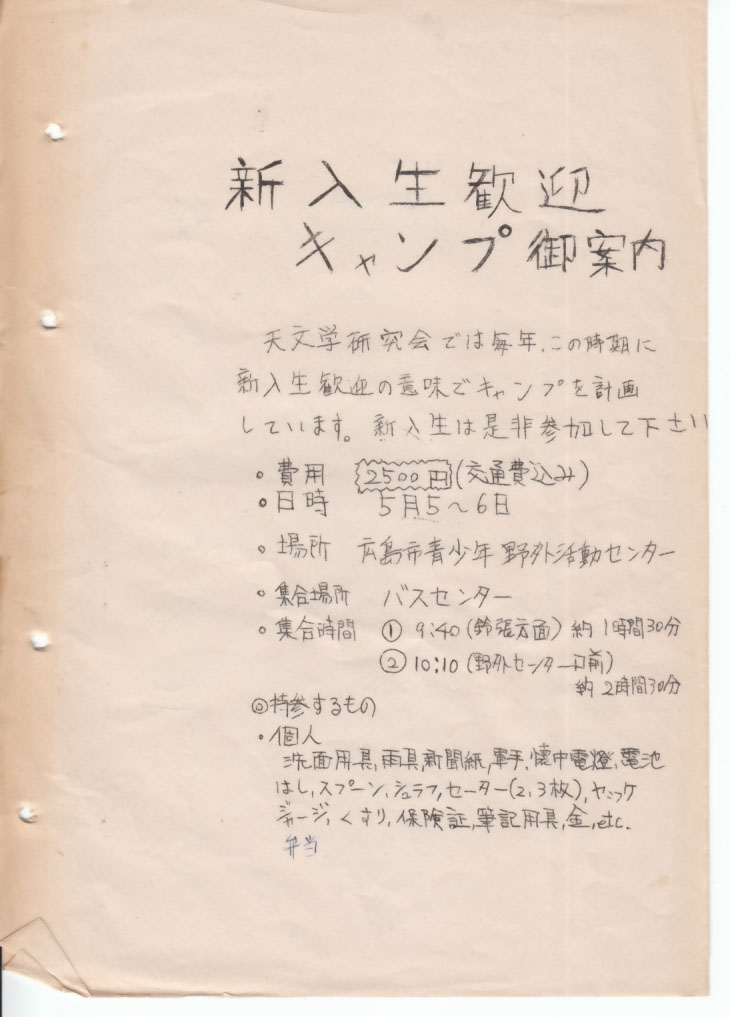 新入生歓迎
キャンプ御案内
天文学研究会では毎年、この時期に
新入生歓迎の意味でキャンプを計画
しています。新入生は是非参加して下さい
・費用 2500円(交通費込み)
・日時 5月5〜6日
・場所 広島市青少年野外活動センター
・集合場所 バスセンター
・集合時間 ① 9:40(鈴張方面)約1時間30分
② 10:10(野外センター口前)
約2時間30分
◎持参するもの
・個人
洗面用具,雨具,新聞紙,軍手,懐中電燈,電池
はし,スプーン,シュラフ,セーター(2,3枚),ヤッケ
ジャージ,くすり,保険証,筆記用具,金,etc.
弁当